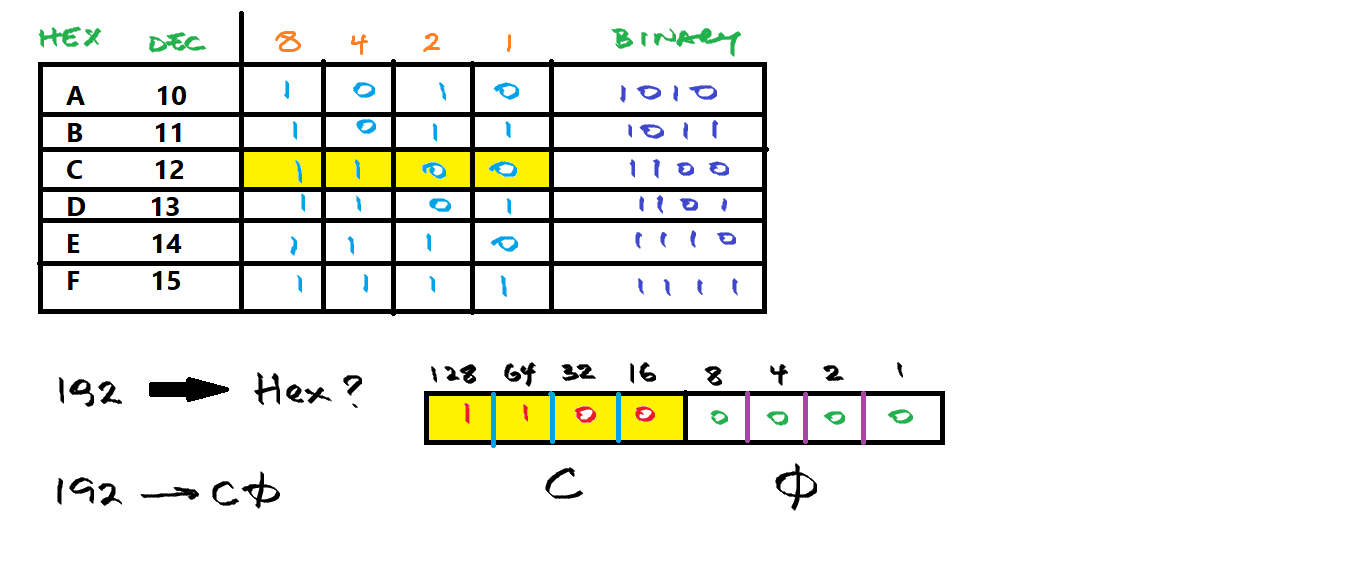 HEX DEC 8 4 2 1 BINARY
A 10 1 0 1 0 1010
B 11 1 0 1 1 1011
C 12 1 1 0 0 1100
D 13 1 1 0 1 1101
E 14 1 1 1 0 1110
F 15 1 1 1 1 1111
128 64 32 16 8 4 2 1
192 → Hex? 1 1 0 0 0 0 0 0
192 → CΦ C Φ